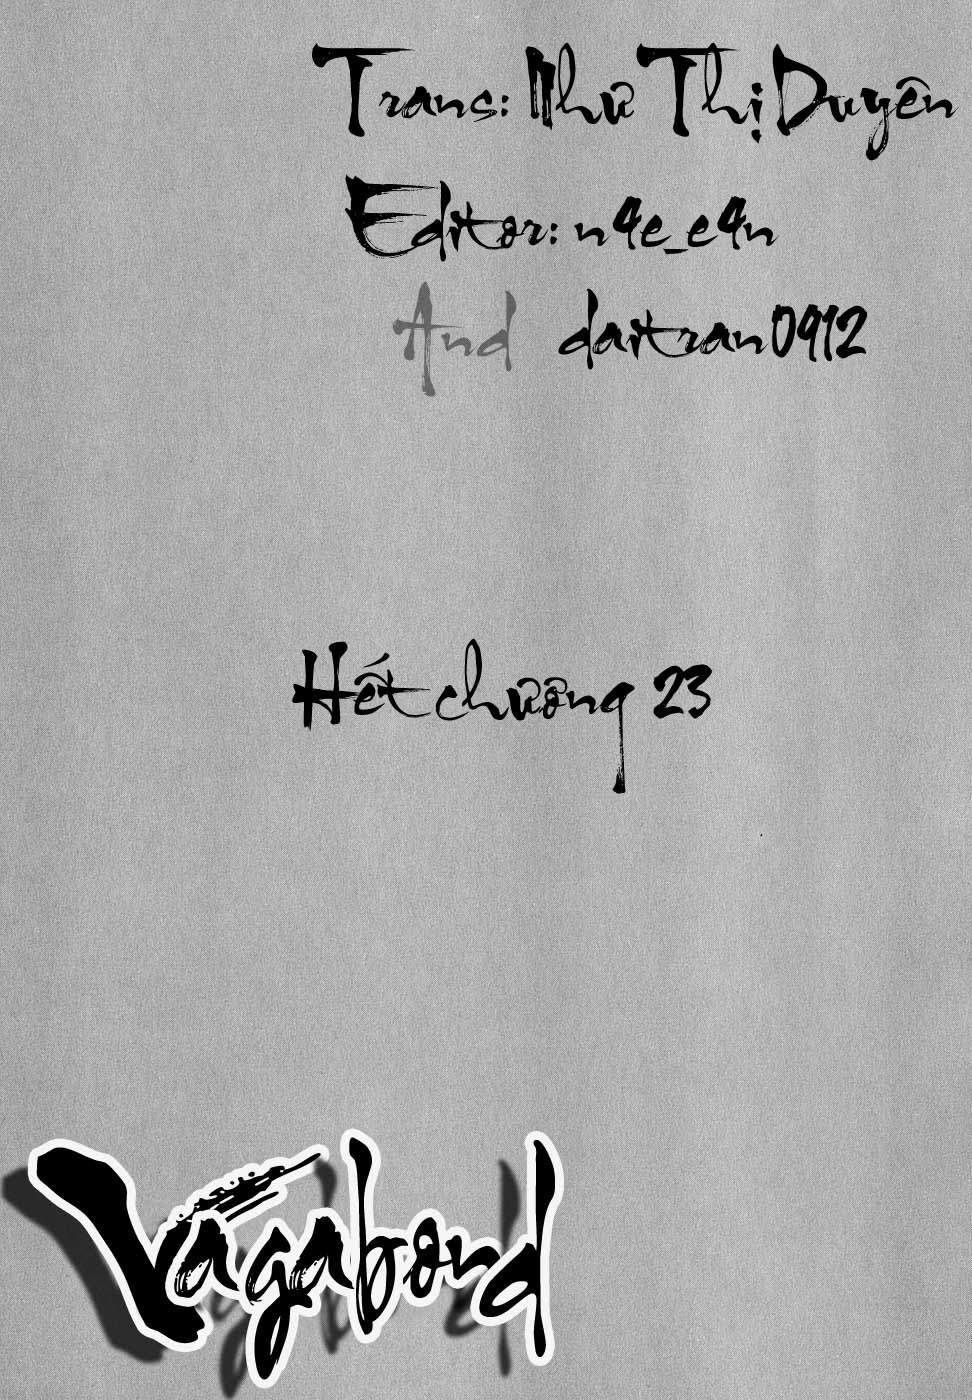 Trans: Như Thị Duyên
Editor: n4e_e4n
And daitran0912
Hết chương 23
Vagabond